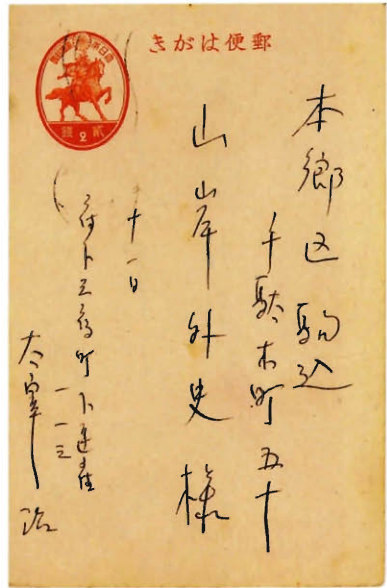 郵便はがき
大日本帝國郵便
貳 2 錢
本郷区駒込
千駄木町五十
山岸外史様
十一日
府下三鷹町下連雀
一一三
太宰治